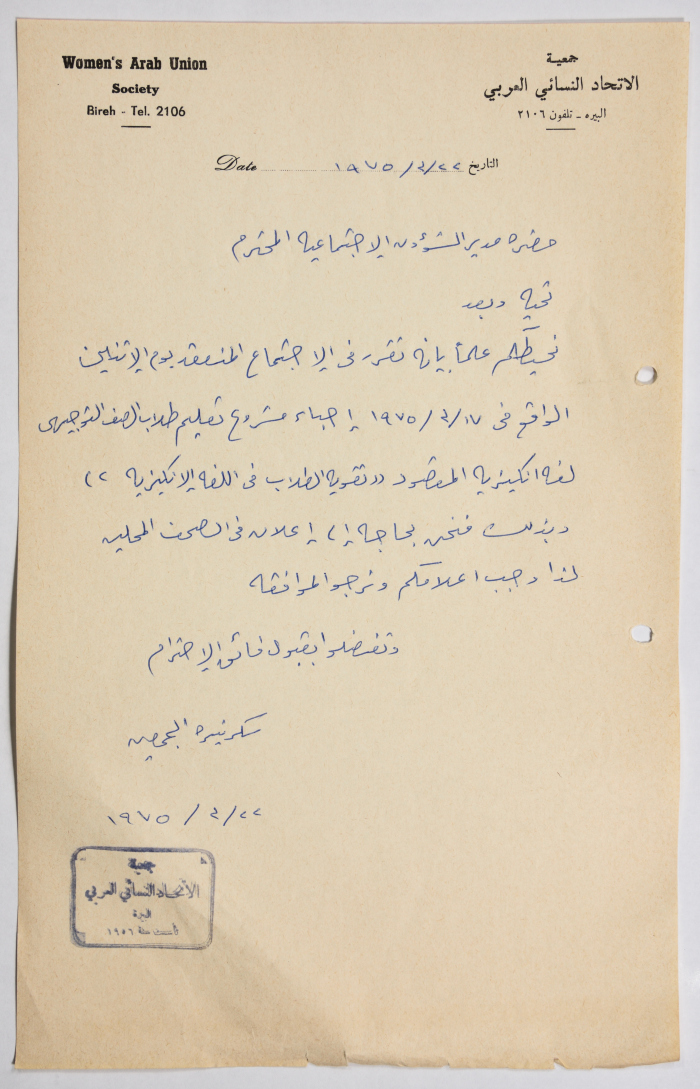 Women's Arab Union
Society
Bireh - Tel. 2106
جمعية
الاتحاد النسائي العربي
البيره - تلفون ٢١٠٦
Date ١٩٧٥/٣/٢٢ التاريخ
حضرة مدير الشؤون الاجتماعية المحترم
تحية وبعد
نحيطكم علماً بانه تقرر في الاجتماع المنعقد يوم الاثنين
الواقع في ١٩٧٥/٣/١٧ إحياء مشروع تعليم طلاب الصف التوجيهي
لغة انكليزية المقصود "تقوية الطلاب في اللغة الانكليزية"
وبذلك فنحن بحاجة إلى إعلان في الصحف المحلية
لذا وجب اعلامكم ونرجو الموافقة
وتفضلوا بقبول فائق الاحترام
سكرتيرة الجمعية
١٩٧٥/٣/٢٢
جمعية
الاتحاد النسائي العربي
البيرة
تأسست سنة ١٩٥٦